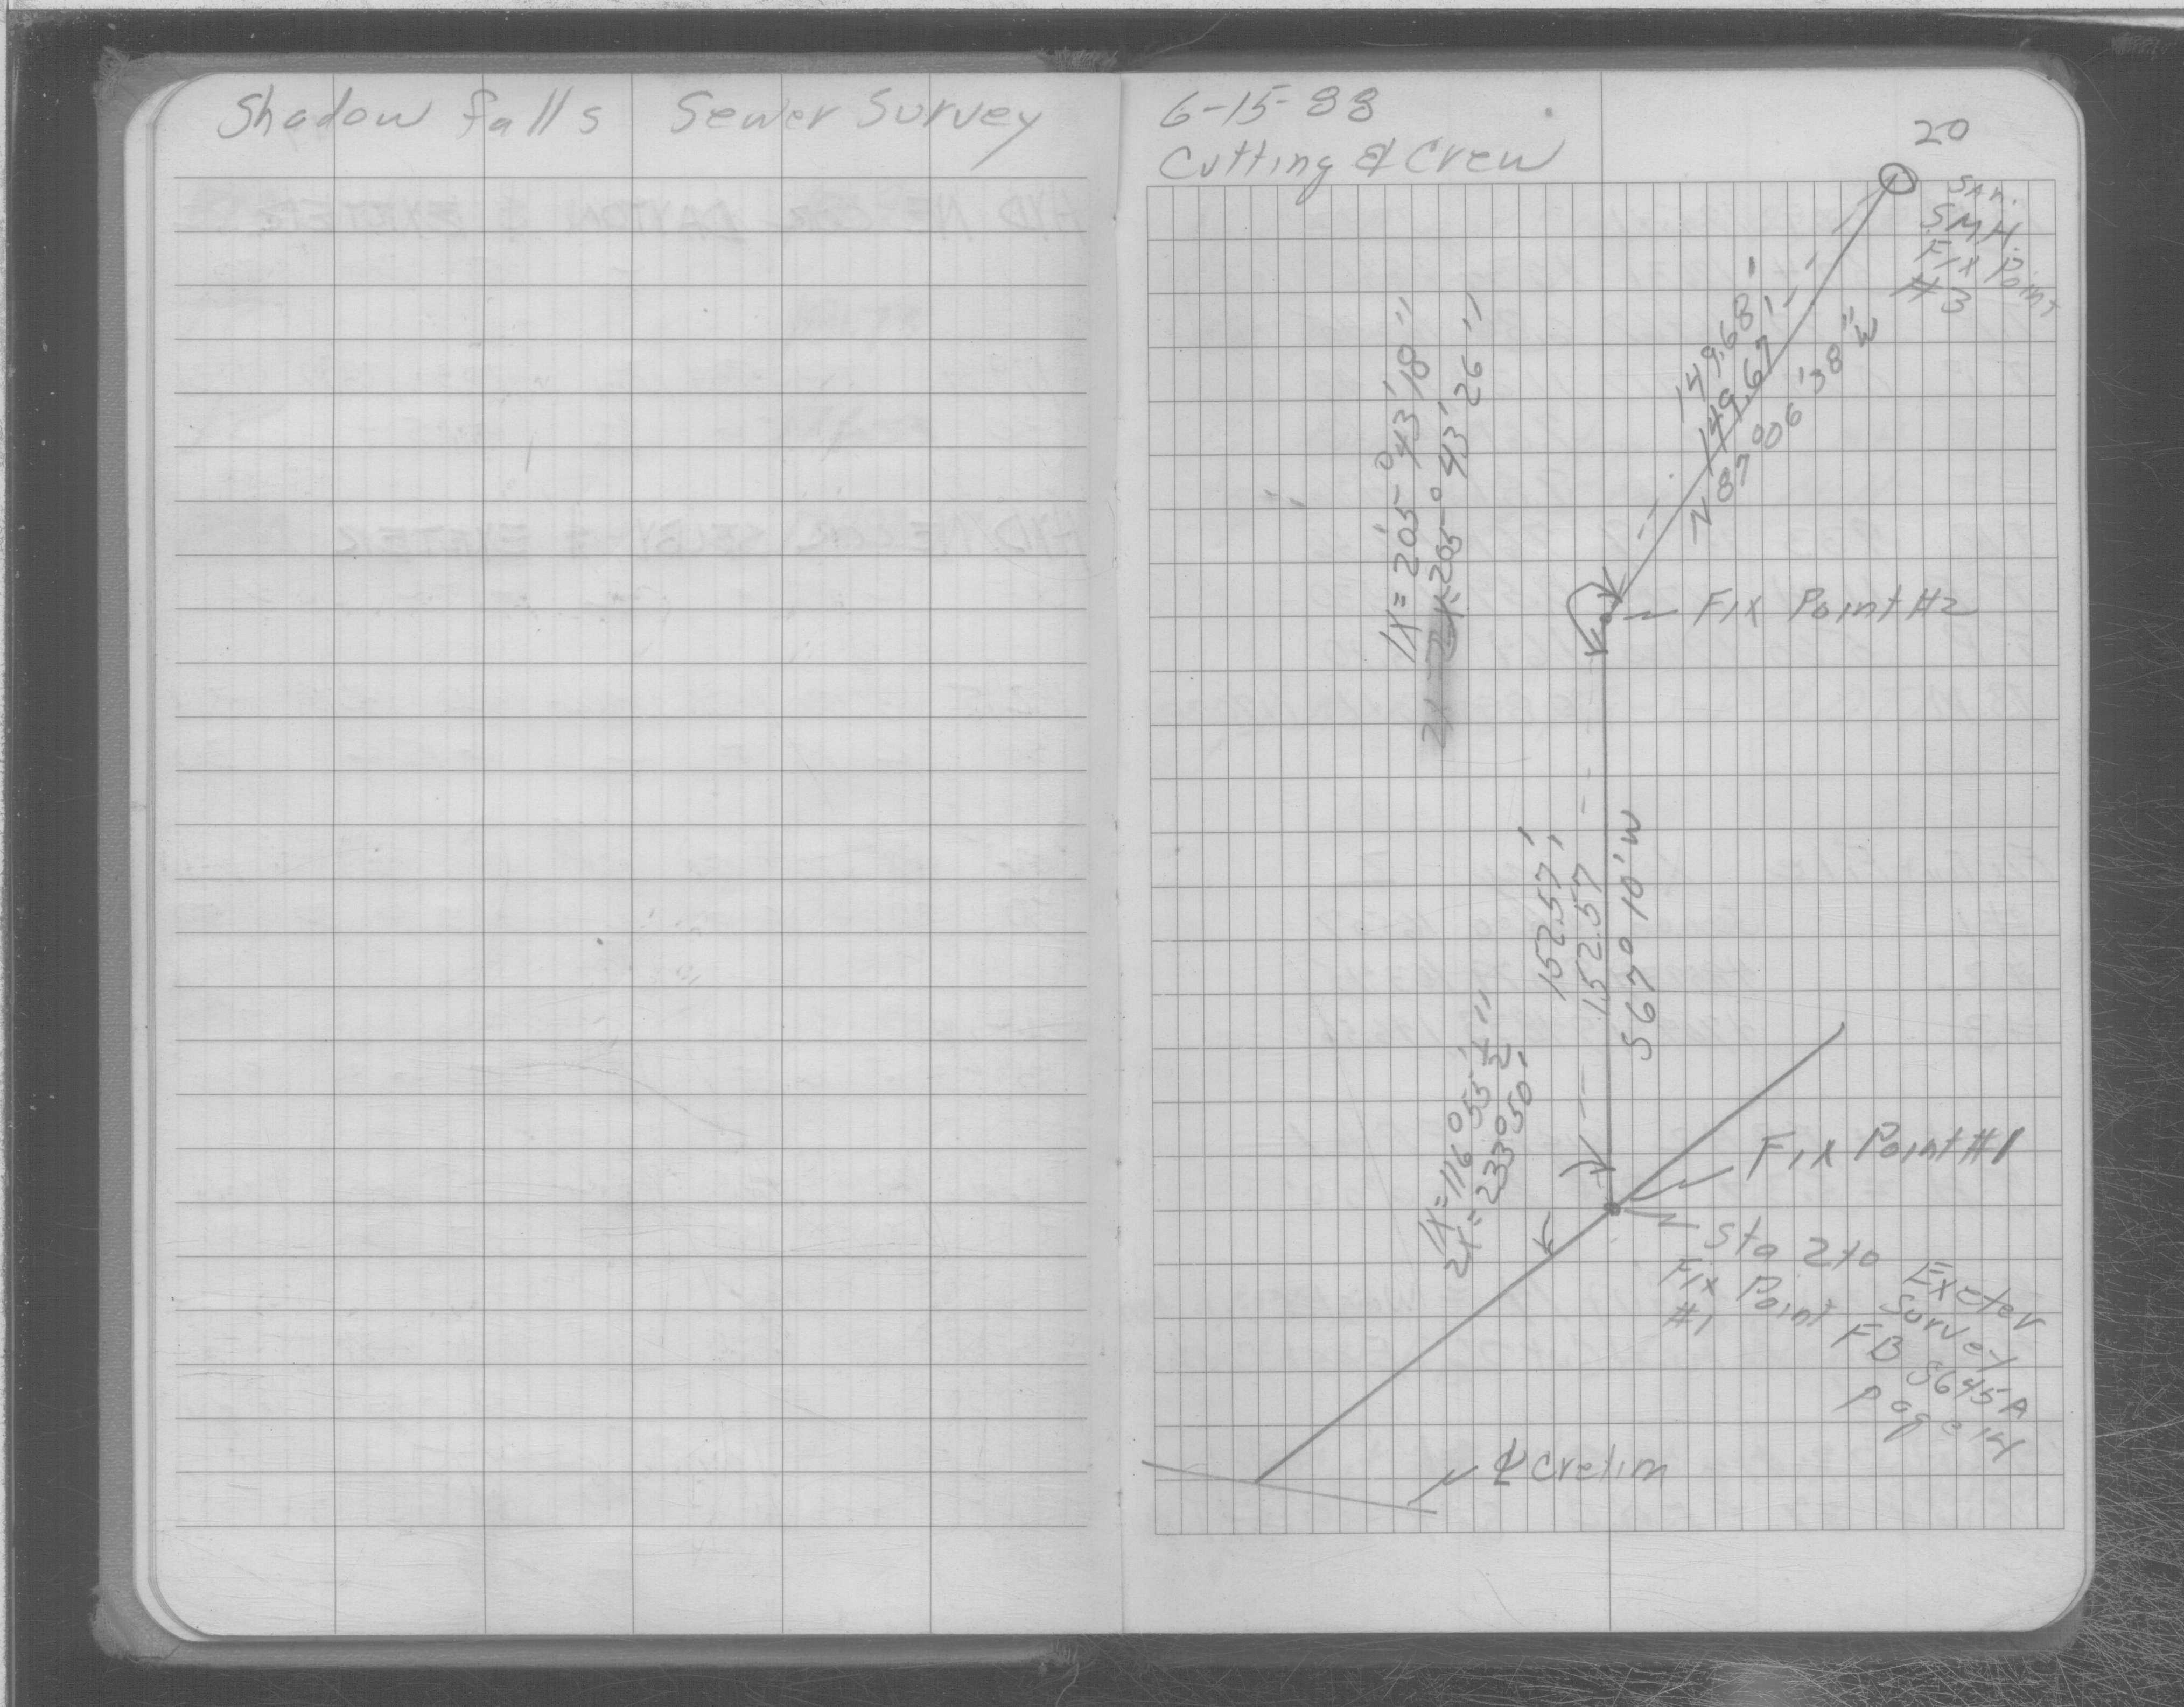 Shadow Falls Sewer Survey
6-15-88
Cutting & Crew
20
San.
SMH.
Fix Point
#3
149.68'
149.67'
N 87°06'38"W
1X = 205°43'18"
2X = 205°43'26"
Fix Point #2
152.57'
152.57'
S 67° 10' W
1X = 116°55'½"
2X = 233°50'
Fix Point #1
Sta 2 to
Fix Point
#1
Exeter
Survey
FB 5645A
Page 14
℄ Cretin